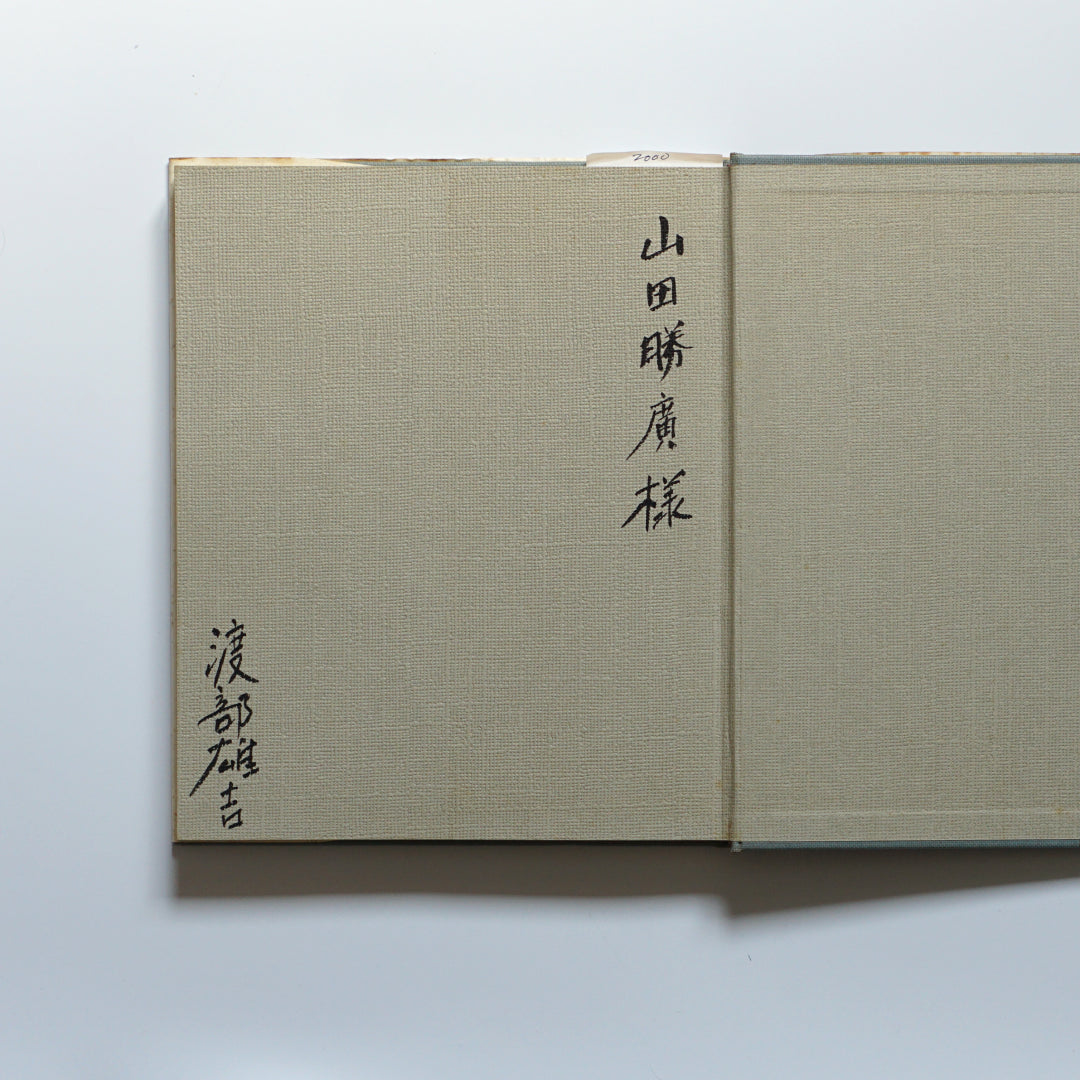 2000
山田勝廣様
渡部雄吉